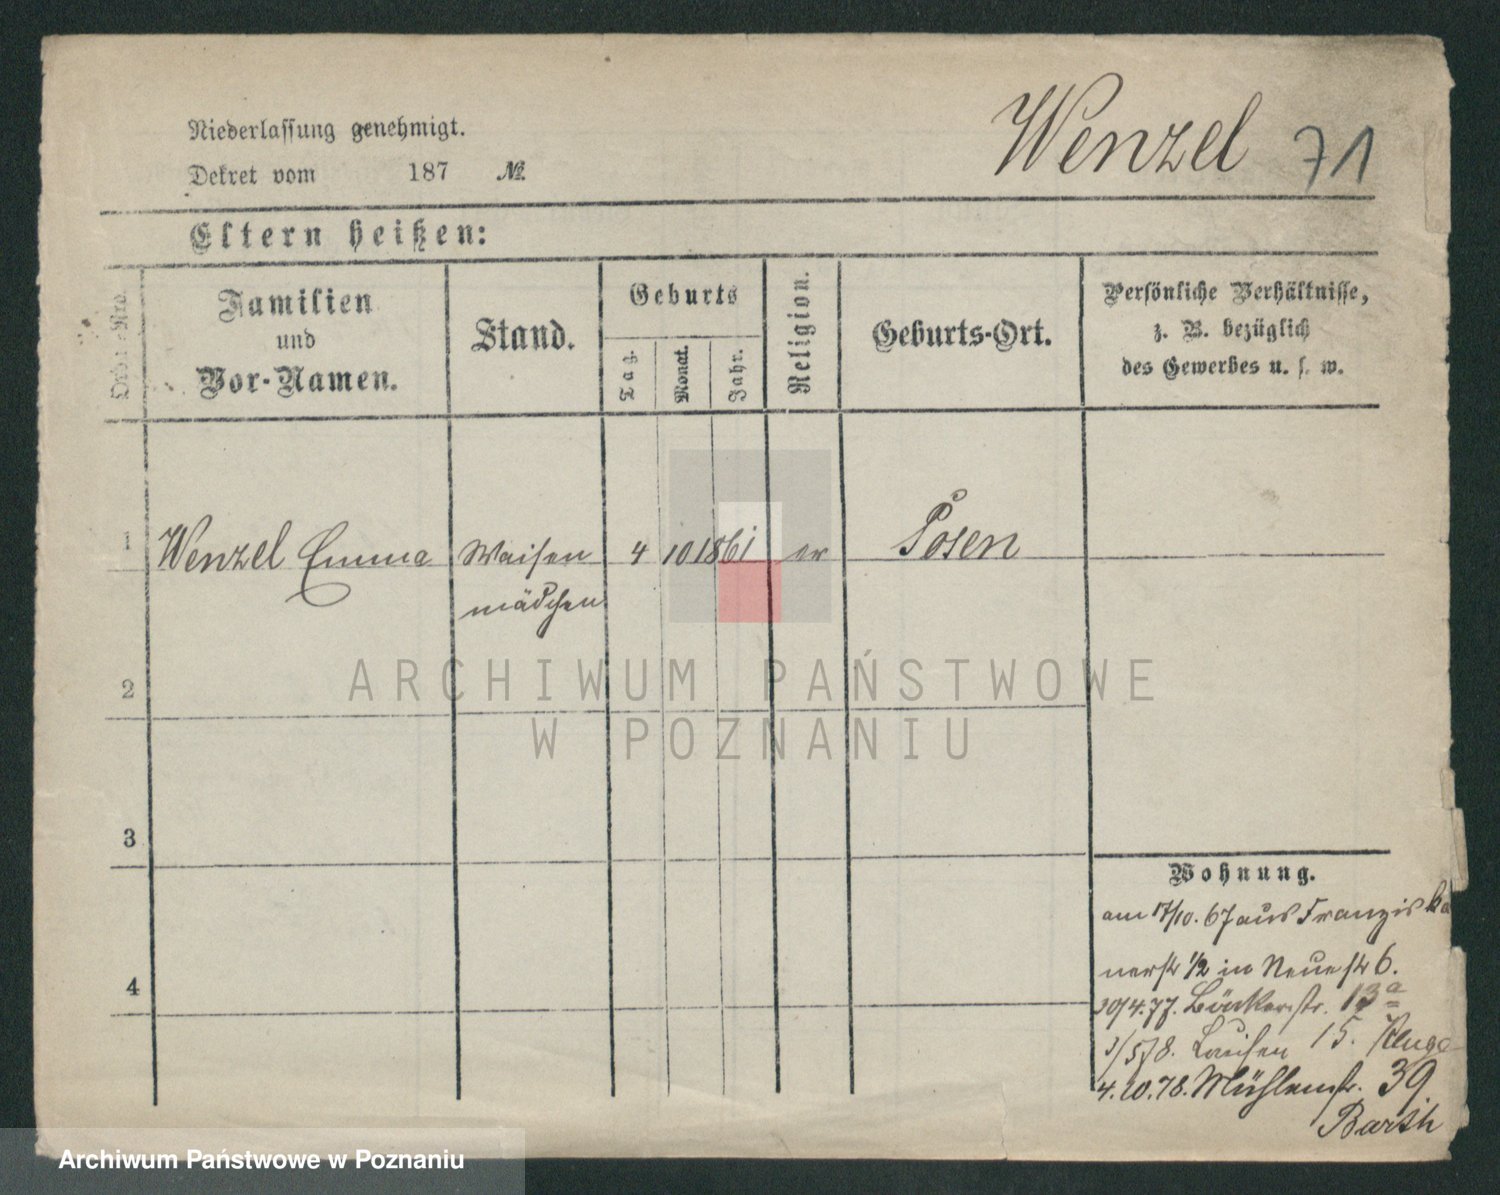 Wenzel 71
Niederlassung genehmigt.
Dekret vom 187 №
Eltern heißen:
Familien
und
Vor-Namen.
Stand.
Geburts
Tag.
Monat.
Jahr.
Religion.
Geburts-Ort.
Persönliche Verhältnisse,
z. B. bezüglich
des Gewerbes u. s. w.
1 Wenzel Emma Waisen 4 10 1861 ev Posen
mädchen
2
3
4
Wohnung.
am 17/10. 67 aus Franziska
nerstr 1/2 in Neuestr 6.
30/4.77. Bäckerstr. 13a
3/5 78. Louisen 15. Kluge
4.10.78. Mühlenstr. 39.
Barth
ARCHIWUM PAŃSTWOWE
W POZNANIU
Archiwum Państwowe w Poznaniu